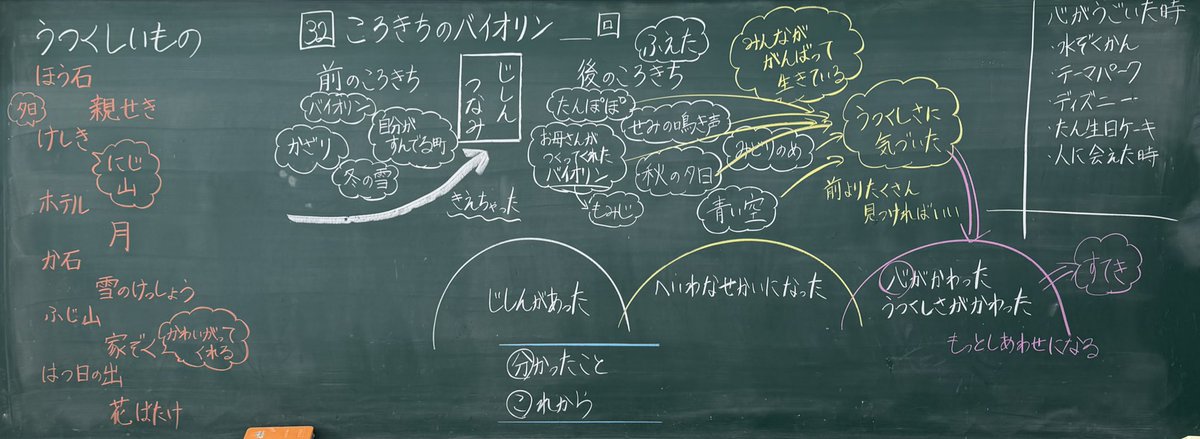 うつくしいもの
ほう石
夕日
親せき
けしき
にじ
山
ホテル
月
か石
雪のけっしょう
ふじ山
家ぞく
かわいがって
くれる
はつ日の出
花ばたけ
32 ころきちのバイオリン __回
前のころきち
バイオリン
かざり
自分が
すんでる町
冬の雪
じしん
つなみ
きえちゃった
後のころきち
ふえた
たんぽぽ
お母さんが
つくってくれた
バイオリン
もみじ
せみの鳴き声
秋の夕日
みどりのめ
青い空
みんなが
がんばって
生きている
うつくしさに
気づいた
前よりたくさん
見つければいい
じしんがあった
へいわなせかいになった
心がかわった
うつくしさがかわった
すてき
もっとしあわせになる
分かったこと
これから
心がうごいた時
・水ぞくかん
・テーマパーク
・ディズニー
・たん生日ケーキ
・人に会えた時